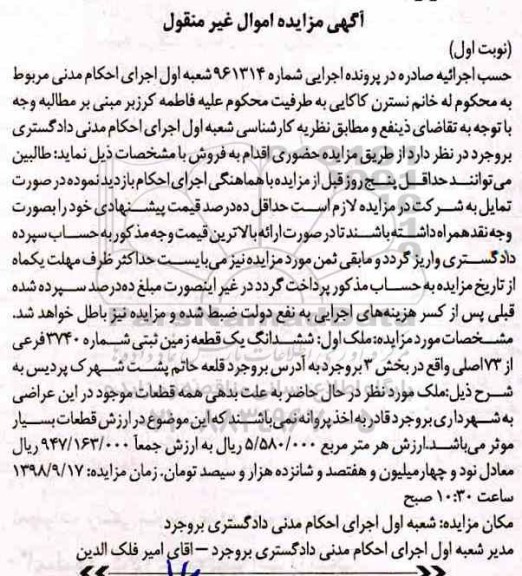 آگهی مزایده اموال غیر منقول
(نوبت اول)
حسب اجرائیه صادره در پرونده اجرایی شماره ۹۶۱۳۱۴ شعبه اول اجرای احکام مدنی مربوط
به محکوم له خانم نسترن کاکایی به طرفیت محکوم علیه فاطمه کرزبر مبنی بر مطالبه وجه
با توجه به تقاضای ذینفع و مطابق نظریه کارشناسی شعبه اول اجرای احکام مدنی دادگستری
بروجرد در نظر دارد از طریق مزایده حضوری اقدام به فروش با مشخصات ذیل نماید: طالبین
می‌توانند حداقل پنج روز قبل از مزایده با هماهنگی اجرای احکام بازدید نموده در صورت
تمایل به شرکت در مزایده لازم است حداقل ده‌درصد قیمت پیشنهادی خود را بصورت
وجه نقد همراه داشته باشند تا در صورت ارائه بالاترین قیمت وجه مذکور به حساب سپرده
دادگستری واریز گردد و مابقی ثمن مورد مزایده نیز می‌بایست حداکثر ظرف مهلت یکماه
از تاریخ مزایده به حساب مذکور پرداخت گردد در غیر اینصورت مبلغ ده‌درصد سپرده شده
قبلی پس از کسر هزینه‌های اجرایی به نفع دولت ضبط شده و مزایده نیز باطل خواهد شد.
مشخصات مورد مزایده: ملک اول: ششدانگ یک قطعه زمین ثبتی شماره ۳۷۴۰ فرعی
از ۷۳ اصلی واقع در بخش ۳ بروجرد به آدرس بروجرد قلعه حاتم پشت شهرک پردیس به
شرح ذیل: ملک مورد نظر در حال حاضر به علت بدهی همه قطعات موجود در این عراضی
به شهرداری بروجرد قادر به اخذ پروانه نمی‌باشند که این موضوع در ارزش قطعات بسیار
موثر می‌باشد. ارزش هر متر مربع ۵/۵۸۰/۰۰۰ ریال به ارزش جمعاً ۹۴۷/۱۶۳/۰۰۰ ریال
معادل نود و چهار میلیون و هفتصد و شانزده هزار و سیصد تومان. زمان مزایده: ۱۳۹۸/۹/۱۷
ساعت ۱۰:۳۰ صبح
مکان مزایده: شعبه اول اجرای احکام مدنی دادگستری بروجرد
مدیر شعبه اول اجرای احکام مدنی دادگستری بروجرد – اقای امیر فلک الدین